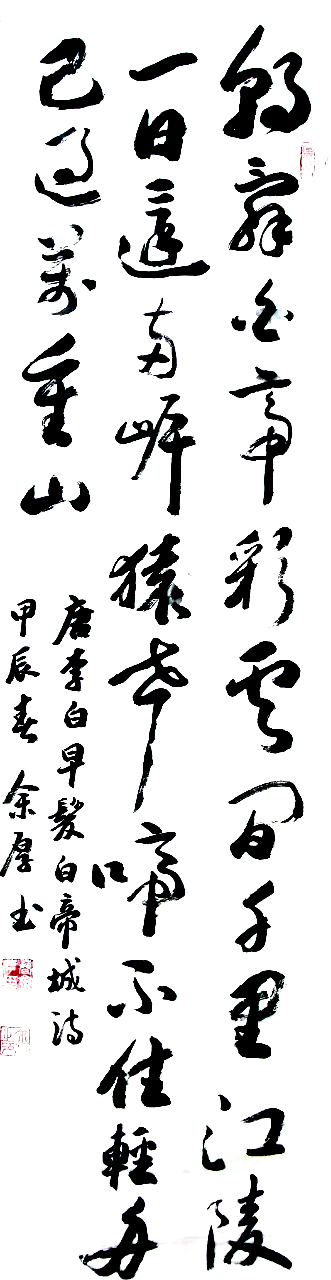 朝辭白帝彩雲間千里江陵
一日還兩岸猿聲啼不住輕舟
已過萬重山
唐李白早髮白帝城詩
甲辰春 余厚书